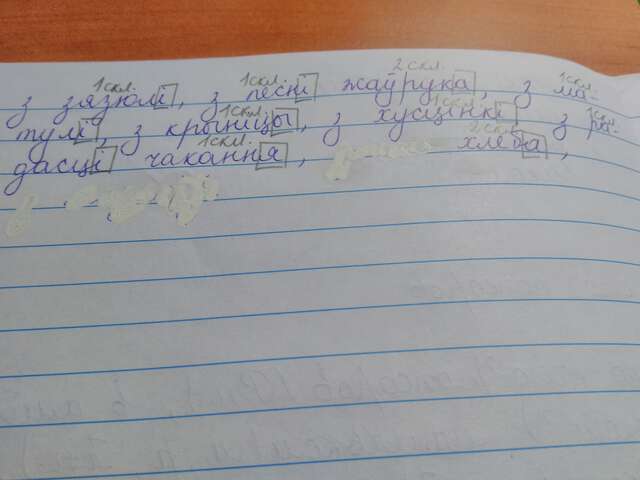 1скл. 1скл. 2скл. 1скл.
з зязюлі, з песні жаўрука, з ма-
1скл. 1скл. 1скл.
тулі, з крыніцы, з хусцінкі з ра-
1скл. 2скл.
дасці чакання, хлеба,